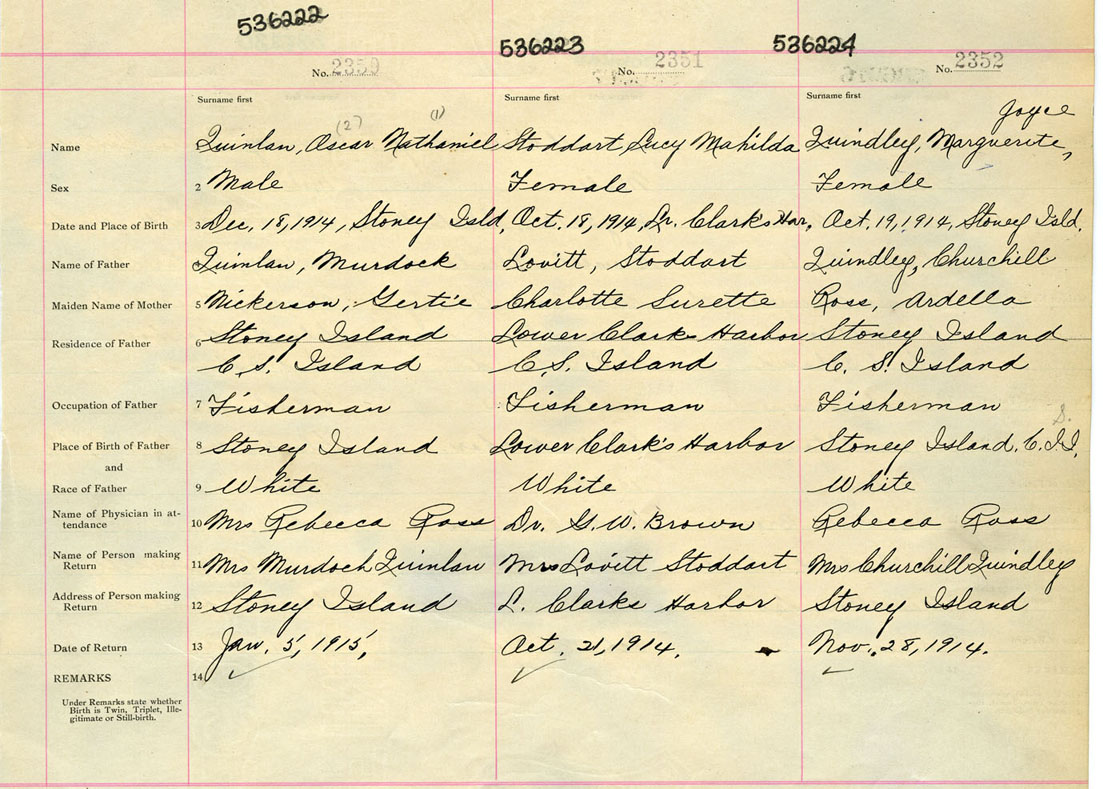 536222 536223 536224
No. 2350 No. 2351 No. 2352
Surname first Surname first Surname first
(2) (1) Joyce
Name Quinlan, Oscar Nathaniel Stoddart, Lucy Mahilda Quindley, Marguerite,
Sex 2 Male Female Female
Date and Place of Birth 3 Dec. 18, 1914, Stoney Isld, Oct. 18, 1914, Lr. Clark's Har, Oct. 19, 1914, Stoney Isld.
Name of Father 4 Quinlan, Murdock Lovitt, Stoddart Quindley, Churchill
Maiden Name of Mother 5 Nickerson, Gertie Charlotte Surette Ross, Ardella
Residence of Father 6 Stoney Island Lower Clark Harbor Stoney Island
C. S. Island C. S. Island C. S. Island
Occupation of Father 7 Fisherman Fisherman Fisherman
S.
Place of Birth of Father 8 Stoney Island Lower Clark's Harbor Stoney Island. C. I.
and
Race of Father 9 White White White
Name of Physician in at-
tendance 10 Mrs Rebecca Ross Dr. G. W. Brown Rebecca Ross
Name of Person making
Return 11 Mrs Murdoch Quinlan Mrs Lovitt Stoddart Mrs Churchill Quindley
Address of Person making
Return 12 Stoney Island L. Clarks Harbor Stoney Island
Date of Return 13 Jan. 5, 1915, Oct. 21, 1914. Nov. 28, 1914.
REMARKS 14
Under Remarks state whether
Birth is Twin, Triplet, Ille-
gitimate or Still-birth.